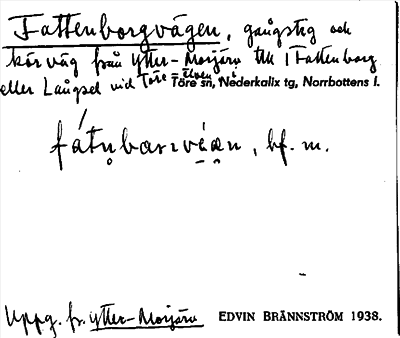 Fattenborgvägen, gångstig och
körväg från Ytter-Morjärv till Fattenborg
eller Långsel vid Töre älv i Töre sn, Nederkalix tg, Norrbottens l.
bf. m.
Uppg. fr. Ytter-Morjärv EDVIN BRÄNNSTRÖM 1938.